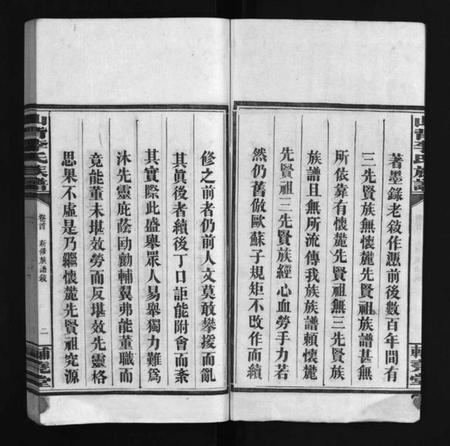 著墨錄老敘作憑前後數百年間有
三先賢族無懷麓先賢祖族譜甚無
所依靠有懷麓先賢祖無三先賢族
族譜且無所流傳我族族譜賴懷麓
先賢祖三先賢族經心血勞手力若
然仍舊倣歐蘇子規矩不改作而續
山背李氏族譜
輔堯堂
修之前者仍前人文莫敢攀援而亂
其真後者續後丁口詎能附會而紊
其實際此盛舉眾人易舉獨力難為
沐先靈庇蔭劻勷輔翼弗能董職而
竟能董未堪效勞而反堪效先靈格
思果不虛是乃繼懷麓先賢祖究源
山背李氏族譜
卷首
新修族譜敘
二
輔堯堂